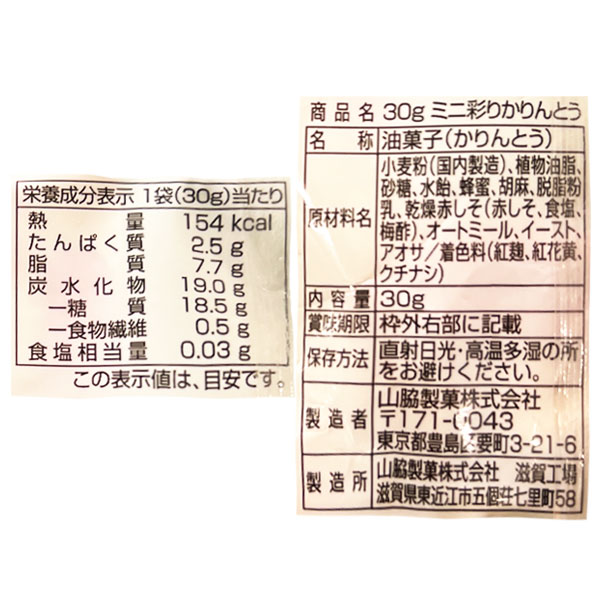 栄養成分表示 1袋(30g)当たり
熱量 154 kcal
たんぱく質 2.5 g
脂質 7.7 g
炭水化物 19.0 g
―糖質 18.5 g
―食物繊維 0.5 g
食塩相当量 0.03 g
この表示値は、目安です。
商品名 30g ミニ彩りかりんとう
名称 油菓子(かりんとう)
原材料名 小麦粉(国内製造)、植物油脂、
砂糖、水飴、蜂蜜、胡麻、脱脂粉
乳、乾燥赤しそ(赤しそ、食塩、
梅酢)、オートミール、イースト、
アオサ/着色料(紅麹、紅花黄、
クチナシ)
内容量 30g
賞味期限 枠外右部に記載
保存方法 直射日光・高温多湿の所
をお避けください。
製造者 山脇製菓株式会社
〒171-0043
東京都豊島区要町3-21-6
製造所 山脇製菓株式会社 滋賀工場
滋賀県東近江市五個荘七里町58